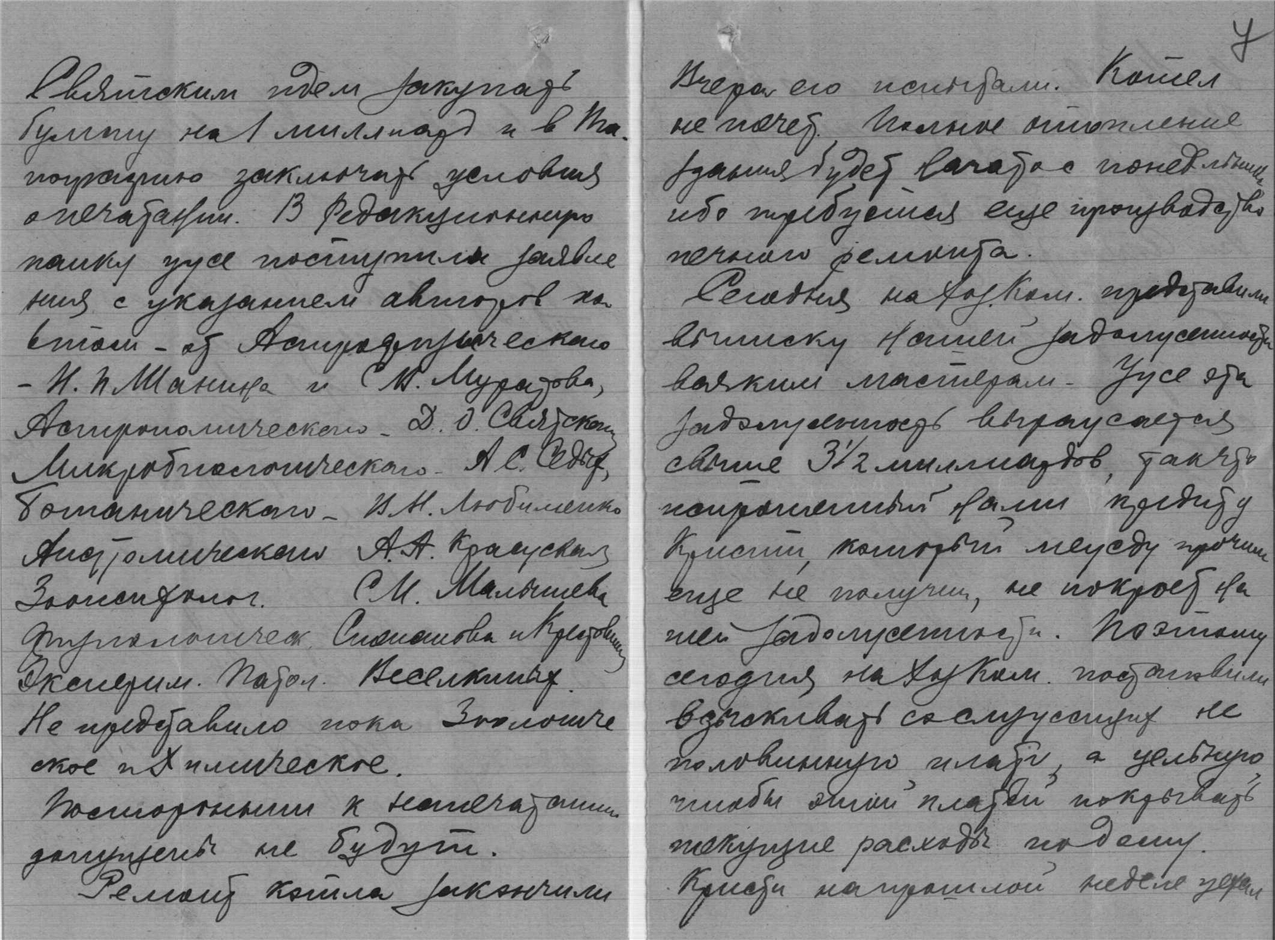 Святским идем закупать
бумагу на 1 миллиард и в Ти-
пографию заключать условия
о печатании. В Редакционную
папку уже поступили заявле
ния с указанием авторов ра
бтом - от Астрофизического
- И. П. Шанина и С. М. Муратова,
Астрономического - Д. О. Святского
Микробиологического - А С. Седых,
Ботаническаго - И. Н. Любименко
Анатомического А. А. Красуская
Зоопсихолог. С. И. Малышева
физиологическ. Симанова и Крестовник
Эксперим. Патол. Веселкиных.
Не представило пока Зоологиче
ское и Химическое.
Посторонними к напечатанию
допущены не будут.
Ремонт котла закончили
7
Вчера его испытали. Котел
не течет. Полное отопление
здания будет начато с понедельника
ибо требуется еще производство
печного ремонта.
Сегодня на ХозКом. представили
выписку нашей задолженности
всяким мастерам - Уже эта
задолженность выражается
свыше 3½ миллиардов, так что
испрошенный нами кредит у
Кристи, который между прочим
еще не получен, не покроет на
шей задолженности. Поэтому
сегодня на ХозКом. постановили
взыскивать со служащих не
половинную плату, а цельную,
чтобы этой платой покрывать
текущие расходы по дому.
Кристи на прошлой неделе уехал